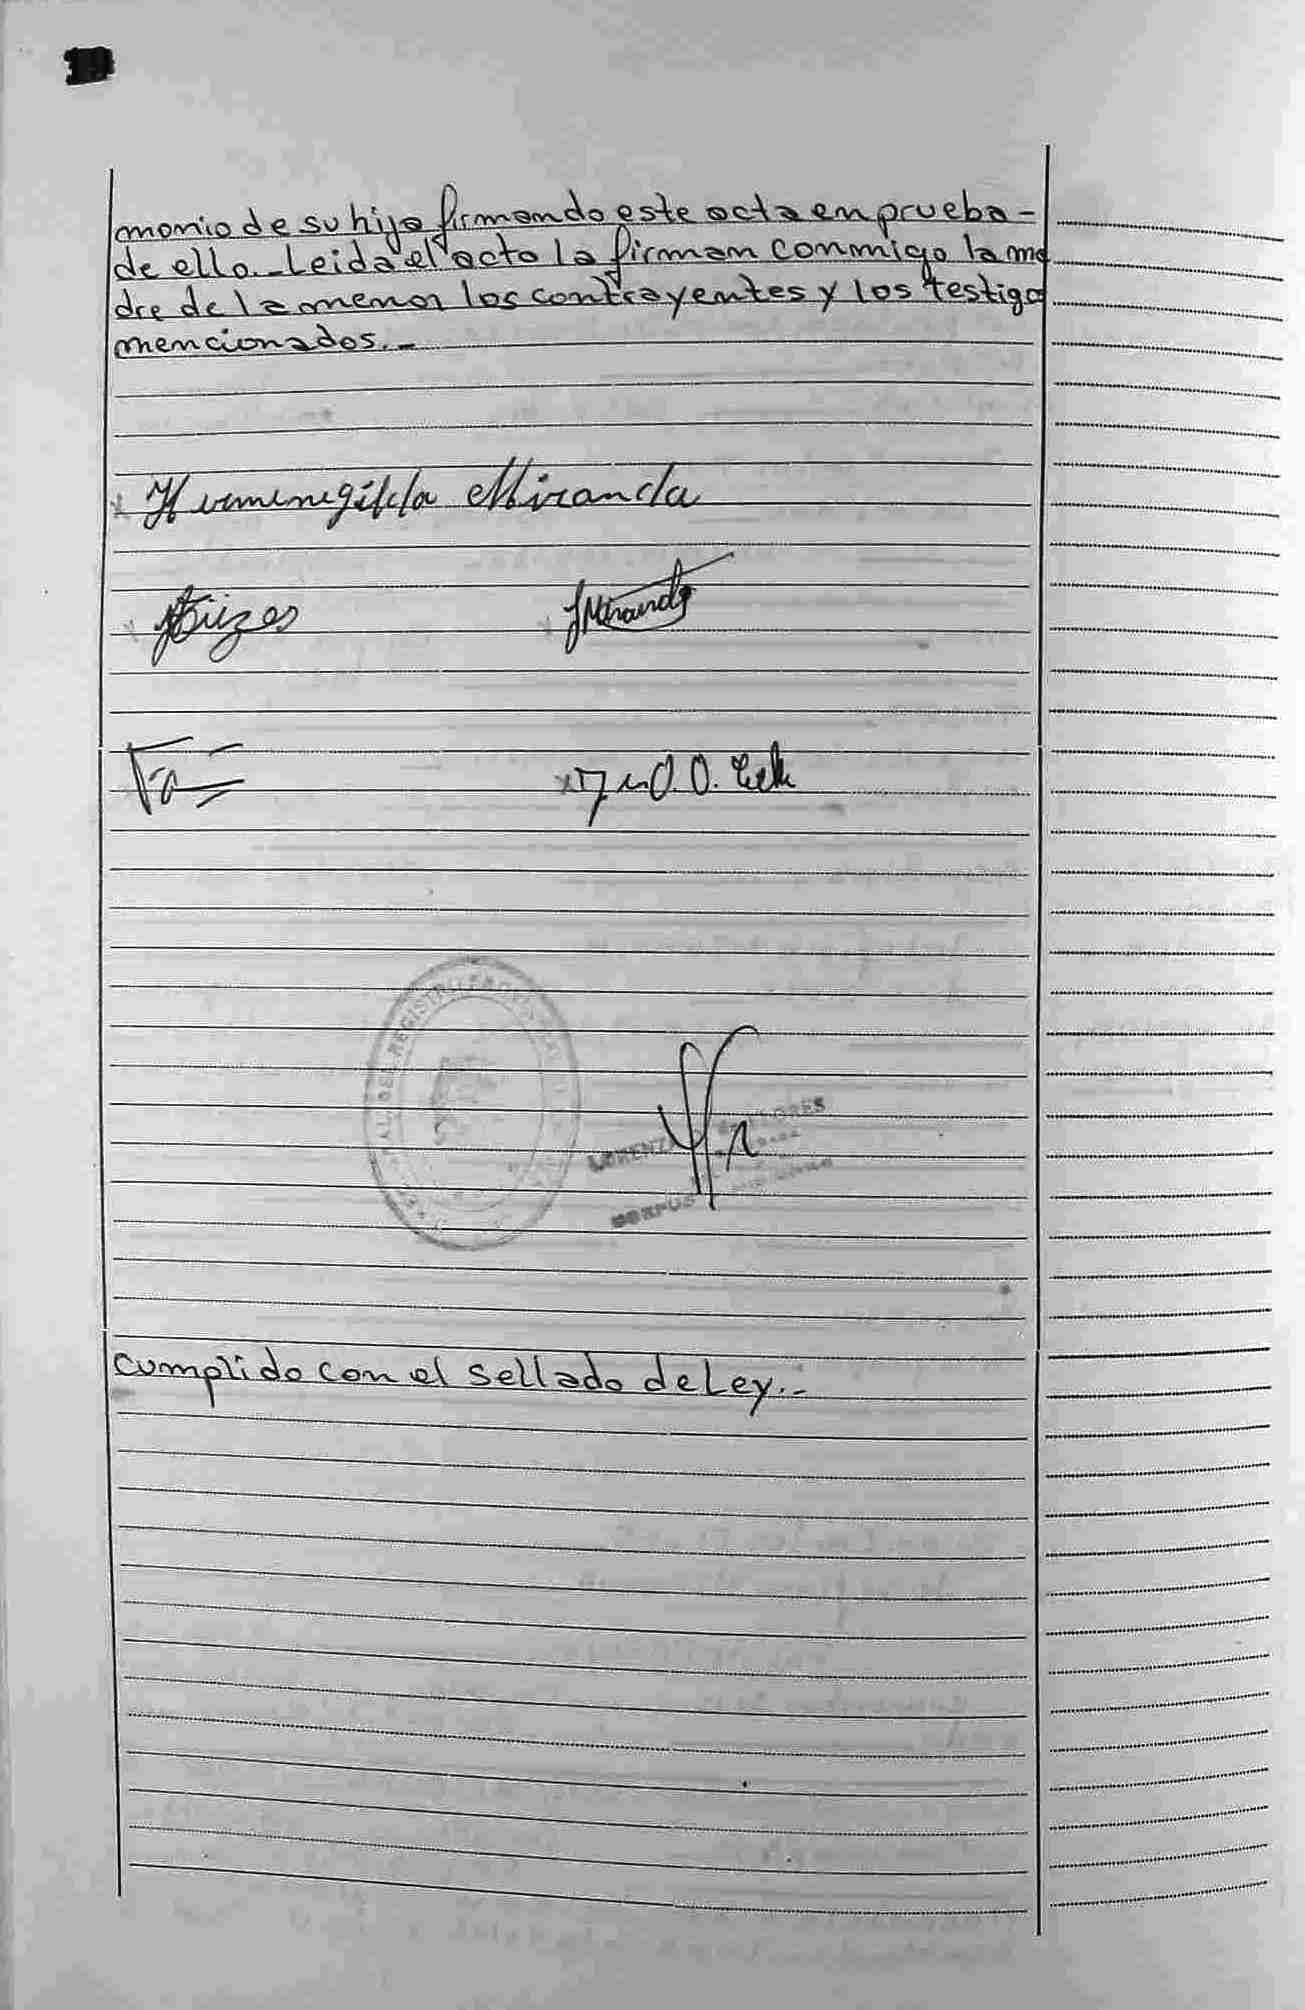 monio de su hija firmando este acta en prueba-
de ello.- Leida el acta la firman conmigo la ma
dre de la menor los contrayentes y los testigo
mencionados.-
Hermenegilda Miranda
JMiranda
REGISTRO
LORENZA FLORES
CORPUS
cumplido con el sellado de Ley.-